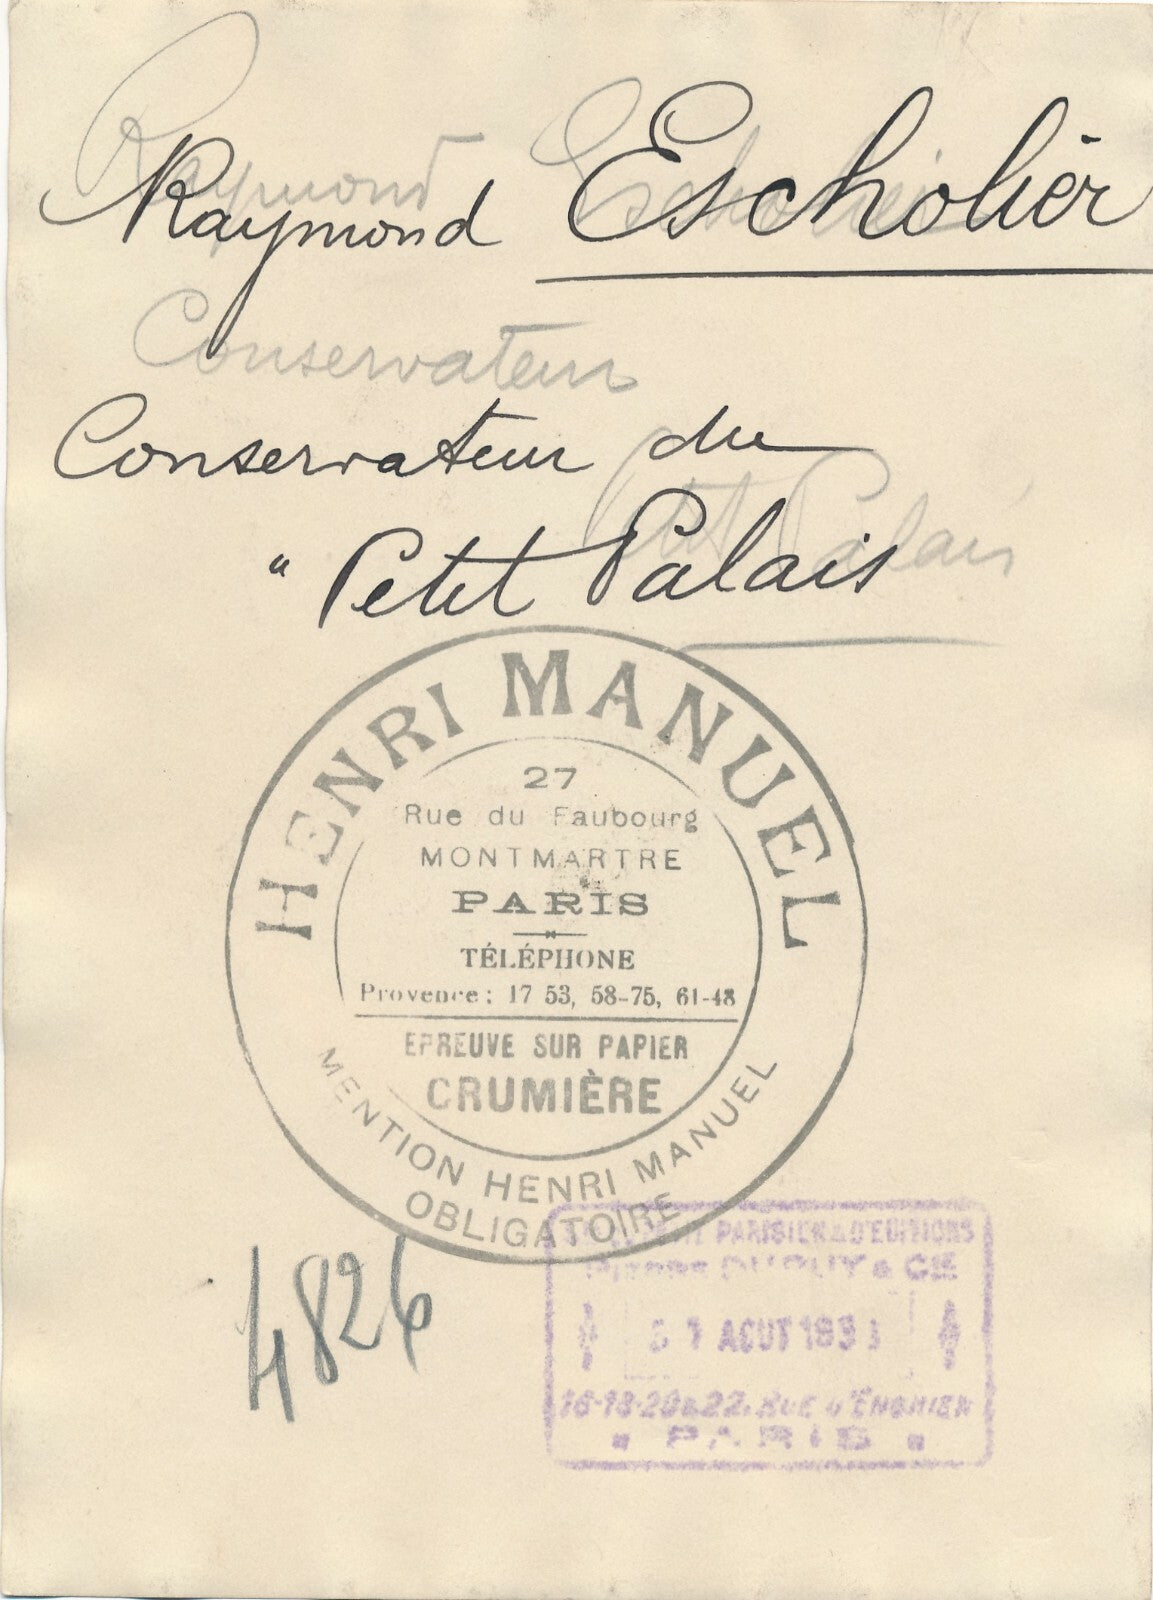 Raymond Escholier
Raymond Escholier
Conservateur
Conservateur du
Petit Palais
" Petit Palais
HENRI MANUEL
27
Rue du Faubourg
MONTMARTRE
PARIS
TÉLÉPHONE
Provence: 17 53, 58-75, 61-48
EPREUVE SUR PAPIER
CRUMIÈRE
MENTION HENRI MANUEL
OBLIGATOIRE
4826
PARISIEN D'EDITIONS
PIERRE DUPUY & CIE
AOUT
16-18-20&22, RUE D'ENGHIEN
PARIS